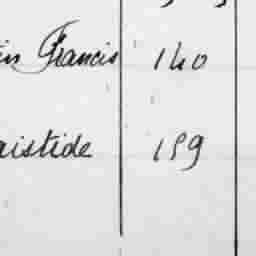 Francis 140
aistide 159